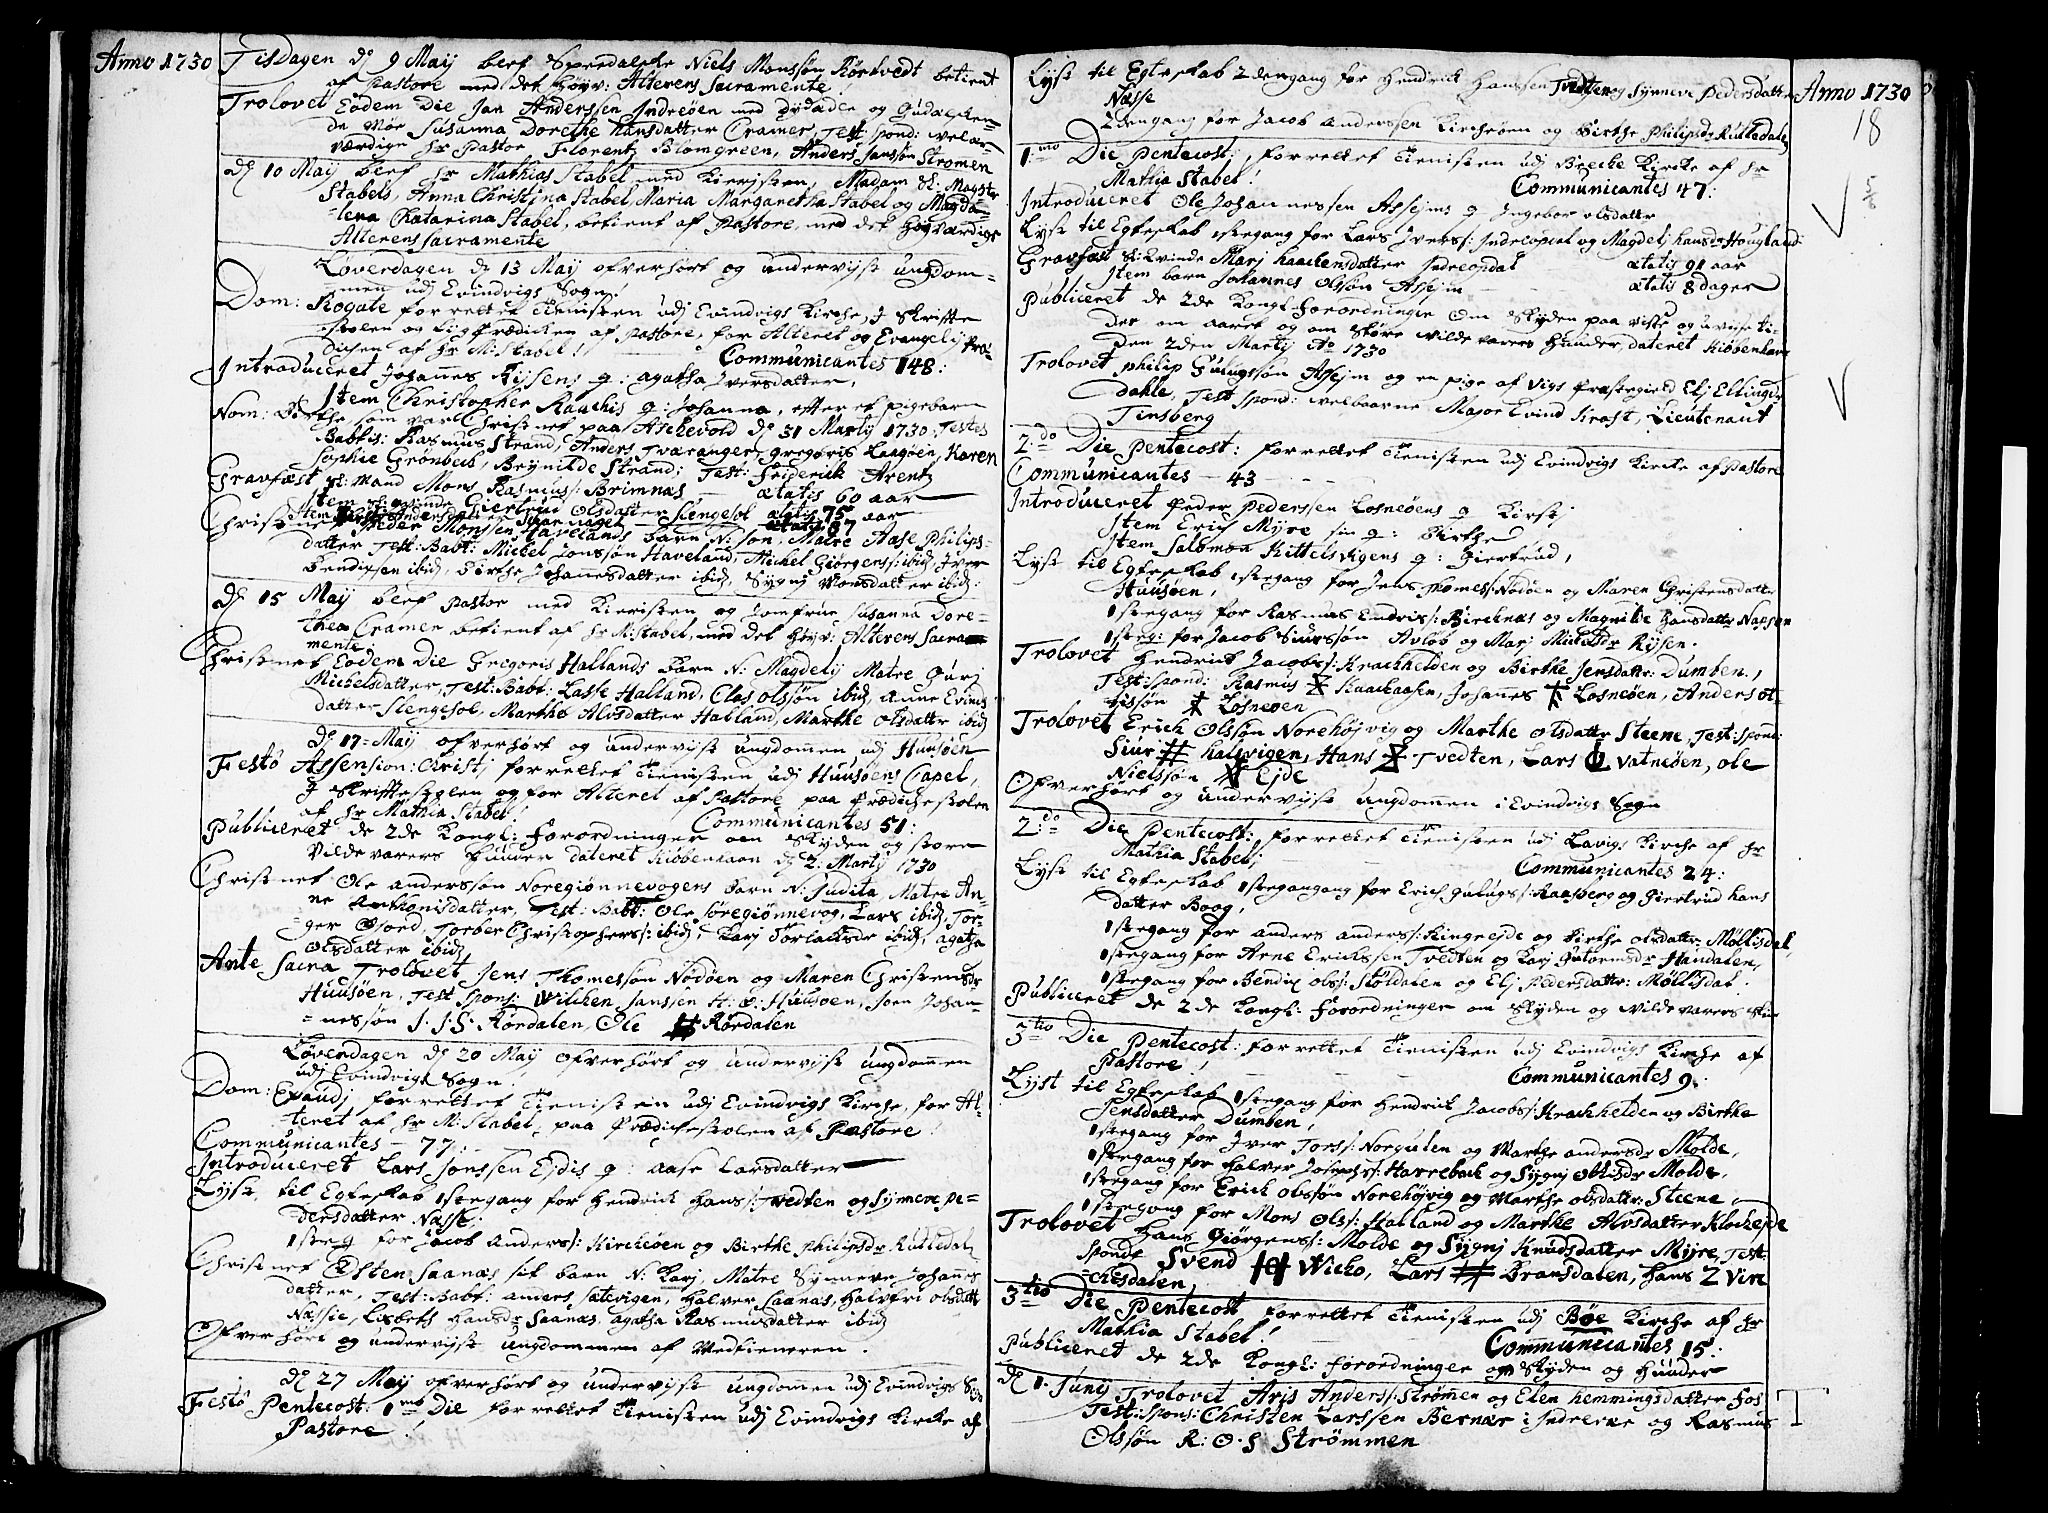 Anno 1730
Tisdagen d: 9 Maij blef Spedalske Niels Monssøn Børtvedt betient
af Pastore med det Høyv: Alterens Sacramente!
Trolovet Eodem Die Jan Anderssen Indreøen med Dydædle og Gudelsken-
de Møe Susanna Dorethe Hansdatter Cramer, Test: Spond: velær-
værdige Hr Pastor Florentz Blomgreen, Anders Janssøn Strømen
d: 10 Maij blef Hr Mathias Stabel med Kieristen, Madam Sl: Magster
Stabels, Anna Christina Stabel, Maria Margaretha Stabel og Magda-
=lena Chatarina Stabel, betient af Pastore, med det Høyværdige
Alterens Sacramente
Løverdagen d: 13 Maij ofverhørt og undervijst ungdom=
men udj Evindvigs Sogn!
Dom: Rogate forrettet Tienisten udj Evindvigs Kirche, I Skrifte
stolen og Ligprædicken af Pastore, for Alteret og Evangelij Præ-
dichen af Hr M: Stabel! Communicantes 148:
Introduceret Johannes Rijsens q: Agatha Iversdatter,
Item Christopher Rauchis q: Johanna, efter et pigebarn
Nom: Birthe, som var Christnet paa Aschevold d: 31 Martij 1730. Testes
Babtis: Rasmus Strand, Anders Tværanger, Gregoris Langøen, Karen
Sophie Grønbech, Brynilde Strand; Test: Friderick Arentz
Gravfæst Sl: Mand Mons Rasmuss: Brimnæs, ætatis 60 aar
Item Sl: Qvinde Giertrud Olsdatter Slengesol ætatis 75
ætatis 87 aar
Christnet Peder Monssen Havelands barn N: Jon, Matre Aase Philips-
datter Test: Babt: Michel Jonssøn Haveland, Michel Giørgenss: ibid, Iver
Bendixsen ibid, Birthe Johannesdatter ibid, Sygnj Monsdatter ibid:
d: 15 Maij blef Pastor med Kieristen og Jomfrue Susanna Dore-
thea Cramer betient af Hr M: Stabel, med det Høyv: Alterens Sacra-
mente,
Christnet Eodem Die Gregoris Hallands Barn N: Magdelj Matre Gurj
Michelsdatter, Test: Babt: Lasse Halland, Clas Olssøn ibid, Anne Evinds
datter Slengesol, Marthe Alvsdatter Halland, Marthe Olsdatter ibid
d: 17 Maij ofverhørt og undervijst ungdomen udj Huusøen
Festo Assension: Christj forrettet Tienisten udj Huusøens Capel,
I Skriftestolen og for Alteret af Pastore paa Prædichestolen
af Hr Mathia Stabel! Communicantes 51:
Publiceret de 2de Kongl: Forordninger om Skyden og store
Vildevarers Hunder dateret Kiøbenhavn d: 2: Martij 1730
Christnet Ole Anderssøn Noregiønnevogens barn N: Judita, Matre An-
ne Anthonisdatter, Test: Babt: Ole Søregiønnevog, Lars ibid, Tor-
ger Fiord, Torber Christophers: ibid, Karj Torlachsdr ibid, Agatha
Olsdatter ibid
Ante Sacra Trolovet Jens Thomessøn Nødøen og Maren Christensdr
Huusøen, Test Spons: Wilchen Janssen H: v: Huusøen, Joen Johan-
=nessøn J. J. S. Rørdalen, Ole # Rørdalen
Løverdagen d: 20 Maij ofverhørt og undervijst ungdomen
udj Evindvigs Sogn!
Dom: Exaudj forrettet Tienisten udj Evindvigs Kirche, for Al-
teret af Hr M: Stabel, paa Prædichestolen af Pastore!
Communicantes - 77.
Introduceret Lars Jonssen Ejdis q: Aase Larsdatter
Lyst til Egteskab 1stegang for Hendrick Hanss: Tvedten og Synneve Pe-
dersdatter Næsse:
1steg for Jacob Anderss: Kircheøen og Birthe Philipsdr Rutledal
Christnet Østen Saanæs sit barn N: Karj, Matre Synneve Johannes
datter, Test: Babt: Anners Sætevigen, Halver Saanæs, Halvfri Olsdatt
Næssie, Lisbeth Hansdr Saanæs, Agatha Rasmusdatter ibid
Ofverhørt og undervijst ungdommen af Medtieneren.
d: 27 Maij ofverhørt og undervijst ungdommen udj Evindvigs Sogn
Festo Pentecost: 1mo Die forrettet Tienisten udj Evindvigs Kirke af
Pastore!
Anno 1730
18
Lyst til Egteskab 2dengang for Hendrick Hanssen Tvedten og Synneve Pedersdatter
Næsse
2dengang for Jacob Anderssen Kircheøen og Birthe Philipsdr Rutledalen
1:mo Die Pentecost: forrettet Tienisten udj Breche Kirke af Hr
Mathia Stabel! Communicantes 47:
Introduceret Ole Johannessen Assejms q Ingebor Olsdatter
Lyst til Egteskab 1stegang for Lars Iverss: Indreopdal og Magdelj Hansdr Hougland
Gravfæst Sl: Qvinde Marj Haachensdatter Indreopdal ætatis 91 aar
Item barn Johannes Olssøn Assejm ætatis 8 dager
Publiceret de 2de Kongl: Forordninger Om Skyden paa visse og uvisse ti-
der om aaret og om Støre vilde varers Hunder, dateret Kiøbenhavn
den 2den Martij Ao 1730
Trolovet Philip Gulugssøn Assejm og en pige af Vigs Præstegield Elj Ellingsdr
Dahle, Test Spond: Velbaarne Major Evind Kraft, Lieutenant
Tinsberg
2:do Die Pentecost: forrettet Tienisten udj Evindvigs Kirche af Pastore
Communicantes - 43
Introduceret Peder Pederssen Losneøens q Kirstj
Item Erich Myre sin q: Birthe
Item Salomon Kittelsvigens q: Giertrud,
Lyst til Egteskab 1stegang for Jens Thomess: Nødøen og Maren Christensdatter
Huusøen,
1stegang for Rasmus Endriss: Birchnæs og Magnilde Hansdattr Næssen
1steg: for Jacob Siurssøn Avløb og Marj Michelsdr Rijsen.
Trolovet Hendrick Jacobss: Krachhelden og Birthe Jensdatter: Dumben,
Test: Spond: Rasmus Kaarhaasen, Johannes Losneøen, Anders Ot-
tissøn Losneøen
Trolovet Erick Olssøn Norehøjvig og Marthe Olsdatter Steene, Test: Spond:
Siur # Kalsvigen, Hans Tvedten, Lars Vatneøen, Ole
Nielssøn Ejde
Ofverhørt og undervijst ungdommen i Evindvigs Sogn
2:do Die Pentecost: forrettet Tienisten udj Lavigs Kirche af Hr
Mathia Stabelj Communicantes 24:
Lyst til Egteskab 1stegangang for Erich Gulugs: Raasberg og Giertrud Hans
datter Boog,
1stegang for Anders Anderss: Ringrejde og Birthe Olsdattr: Møllisdal,
1stegang for Arne Erickssen Tvedten og Karj Gutormsdr Handalen,
1stegang for Bendix Olss: Støldalen og Elj Pedersdattr: Møllisdal.
Publiceret de 2de Kongl: Forordninger om Skyden og Vilde varers
3:tio Die Pentecost: forrettet Tienisten udj Evindvigs Kirche af
Pastore! Communicantes 9.
Lyst til Egteskab 1stegang for Hendrick Jacobss: Krachhelden og Birthe
Jensdatter Dumben,
1stegang for Iver Torss: Norgulen og Marthe Andersdr Molde,
1stegang for Halver Josephs: Harrebach og Sygnj Ottisdr Molde,
1stegang for Erick Olssøn Norehøjvig og Marthe Olsdattr: Steene,
1stegang for Mons Olss: Halland og Marthe Alvsdatter Klochejde
Trolovet Hans Giørgenss: Molde og Sygnj Knudsdatter Myre, Test:
Spond: Svend Wicho, Lars # Bransdalen, Hans Z Vir
chesdalen,
3:tio Die Pentecost forrettet Tienisten udj Bøe Kirche af Hr
Mathia Stabel! Communicantes 15:
Publiceret de 2de Kongl: forordninger om Skyden og Hunder
d: 1. Junij Trolovet Aris Anderss: Strømen og Elen Hemmingsdatter Fos
Test: Spons: Christen Larssen Bernær i Indreene og Rasmus
Olssøn R: O. S Strømmen